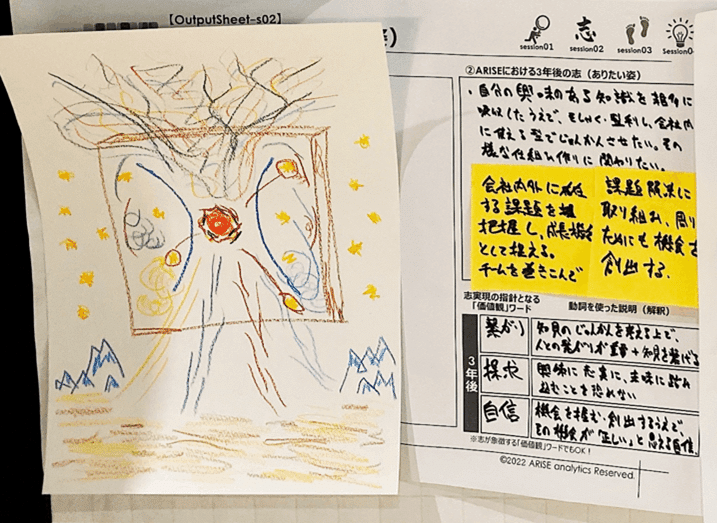 【OutputSheet-s02】
session01
志
session02
session03
②ARISEにおける3年後の志（ありたい姿）
・自分の興味のある知識を貪欲に
吸収したうえで、そしゃく・整利し、会社内
に使える型でじゅんかんさせたい。その
様な仕組み作りに関わりたい。
会社内外に
する課題を
把握し、成長機会
として捉える。
チームを巻きこんで
課題解決に
取り組み、周りの
ためにも機会を
創出する。
志実現の指針となる
「価値観」ワード
動詞を使った説明（解釈）
3年後
繋がり
知見のじゅんかんを考える上で、
人との繋がりが重要+知見を繋げる
探求
興味に充実に、主味に踏み
込むことを恐れない
自信
機会を掴む、創出するうえで、
その機会が"正しい"と思える自信。
※志が象徴する「価値観」ワードでもOK！
©2022 ARISE analytics Reserved.